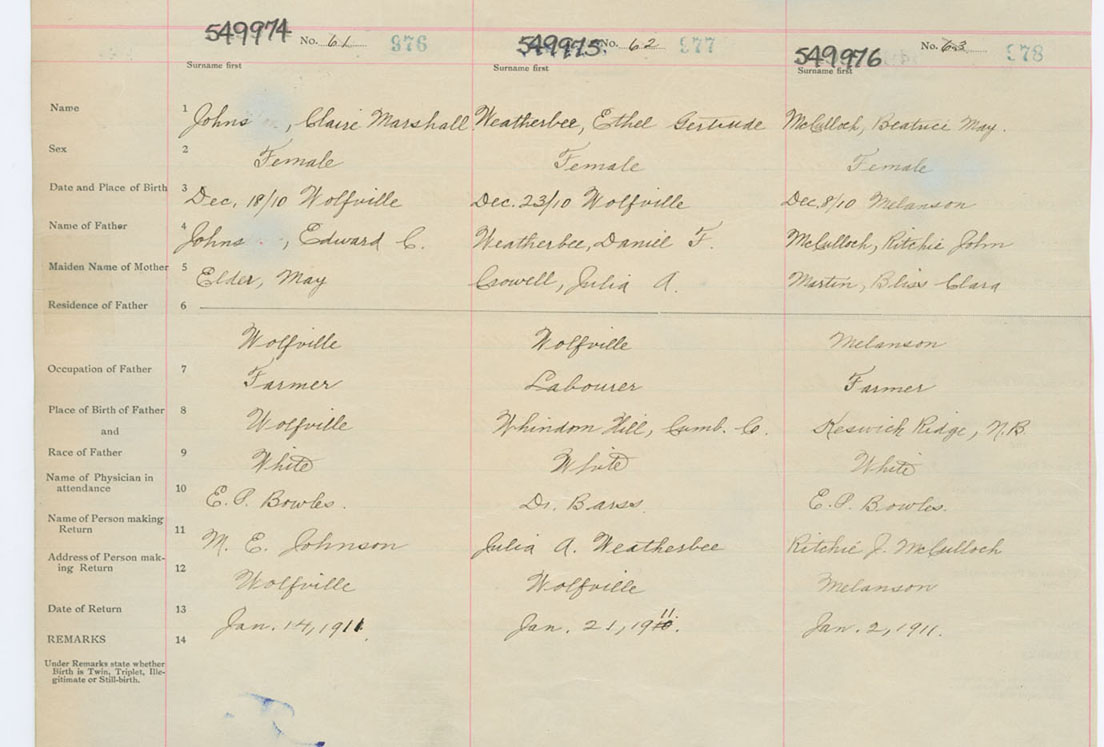 549974 No. 61 976 549975 No. 62 977 549976 No. 63 978
Surname first Surname first Surname first
Name 1 Johns , Claire Marshall Weatherbee, Ethel Gertrude McCulloch, Beatrice May.
Sex 2 Female Female Female
Date and Place of Birth 3 Dec. 18/10 Wolfville Dec. 23/10 Wolfville Dec. 8/10 Melanson
Name of Father 4 Johns , Edward C. Weatherbee, Daniel F. McCulloch, Ritchie John
Maiden Name of Mother 5 Elder, May Crowell, Julia A. Martin, Bliss Clara
Residence of Father 6
Wolfville Wolfville Melanson
Occupation of Father 7 Farmer Labourer Farmer
Place of Birth of Father 8 Wolfville Hill, Cumb. Co. Keswick Ridge, N.B.
and
Race of Father 9 White White White
Name of Physician in
attendance 10 E. P. Bowles. Dr. Barss. E. P. Bowles.
Name of Person making
Return 11 M. E. Johnson Julia A. Weatherbee Ritchie J. McCulloch
Address of Person mak-
ing Return 12 Wolfville Wolfville Melanson
Date of Return 13 Jan. 14, 1911. Jan. 21, 1911. Jan. 2, 1911.
REMARKS 14
Under Remarks state whether
Birth is Twin, Triplet, Ille-
gitimate or Still-birth.